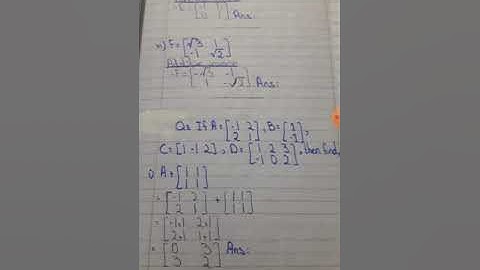 [-1 1
0 1] Ans:
vi) F = [√3 1
-1 √2]
Additive inverse
-F = [-√3 -1
1 -√2] Ans:
Q2 If A = [-1 2
2 1], B = [1
-1],
C = [1 -1 2], D = [1 2 3
-1 0 2], then find,
i) A + [1 1
1 1]
= [-1 2
2 1] + [1 1
1 1]
= [-1+1 2+1
2+1 1+1]
= [0 3
3 2] Ans: